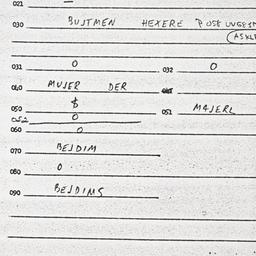 021
030 BUJTMEN HEXERE POST
031 0 032 0
040 MUJER DER
050 $ 051 MAJERL
052 0
060 0
070 BEJDIM
080 0
090 BEJDIMS